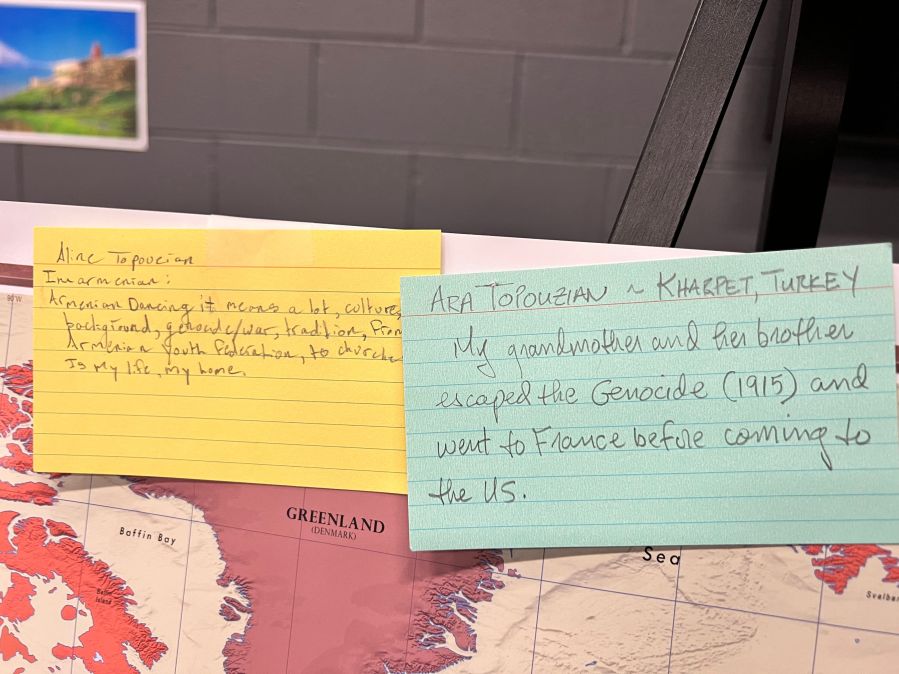 Aline Topoucian
In armenian:
Armenian Dancing it means a lot, culture,
background, genocide/war, tradition, from
Armenian Youth Federation, to churche
Is my life, my home.
ARA TOPOUZIAN ~ KHARPET, TURKEY
My grandmother and her brother
escaped the Genocide (1915) and
went to France before coming to
the US.
80°W
GREENLAND
(DENMARK)
Baffin Bay
Baffin
Island
Sea
Svalbar